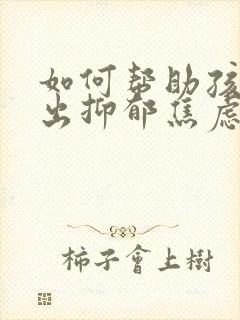 如何帮助孩
出抑郁焦虑
柿子會上樹